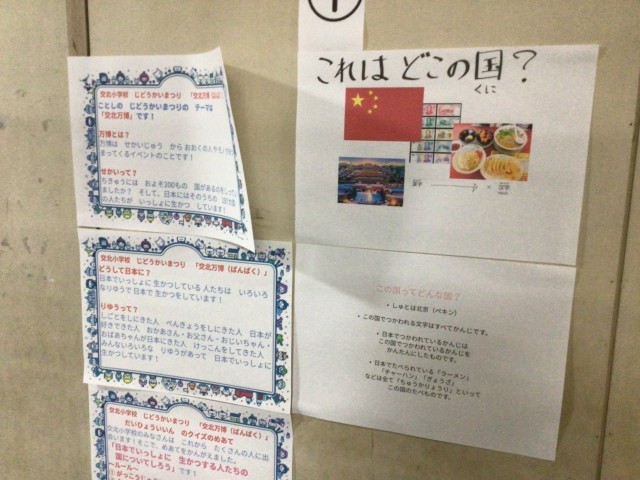 交北小学校 じどうかいまつり 「交北万博
ことしの じどうかいまつりの テーマは
「交北万博」です！
万博とは？
万博は せかいじゅう から おおくの人や
まってくるイベントのことです！
せかいって？
ちきゅうには おおよそ200もの 国が
ましたか？ そして、日本にはそのうちの
の人たちが いっしょに生かつ しています！
交北小学校 じどうかいまつり 「交北万博（ばんぱく）」
どうして日本に？
日本でいっしょに 生かつしている 人たちは いろいろ
なりゆうで 日本で 生かつをしています！
りゆうって？
しごとをしにきた人 べんきょうをしにきた人 日本が
好きできた人 おかあさん・お父さん・おじいちゃん・
おばあちゃんが日本にきた人 けっこんをしてきた人
みんないろいろな りゆうがあって 日本でいっしょに
生かつしています！
交北小学校 じどうかいまつり 「交北万博（ばんぱく）」
だいひょういいん のクイズのめあて
交北小学校のみなさんは これから たくさんの人に出
会います！そこで、めあてをかんがえました。
「日本でいっしょに 生かつする人たちの
国についてしろう」です！
～ルール～
これは どこの国？
くに
この国ってどんな国？
・しゅとは北京（ペキン）
・この国でつかわれる文字はすべてかんじです。
・日本でつかわれているかんじは
この国でつかわれているかんじを
かんたんにしたものです。
・日本でたべられている「ラーメン」
「チャーハン」「ぎょうざ」
などは全て「ちゅうかりょうり」といって
この国のたべものです。